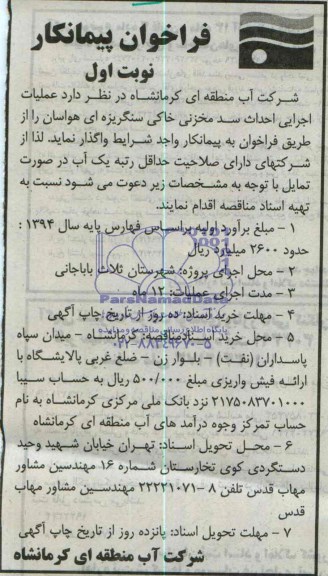 فراخوان پیمانکار
نوبت اول
شرکت آب منطقه ای کرمانشاه در نظر دارد عملیات
اجرایی احداث سد مخزنی خاکی سنگریزه ای هواسان را از
طریق فراخوان به پیمانکار واجد شرایط واگذار نماید. لذا از
شرکتهای دارای صلاحیت حداقل رتبه یک آب در صورت
تمایل با توجه به مشخصات زیر دعوت می شود نسبت به
تهیه اسناد مناقصه اقدام نمایند.
۱ - مبلغ برآورد اولیه براساس فهارس پایه سال ۱۳۹۴ :
حدود ۲۶۰۰ میلیارد ریال
۲ - محل اجرای پروژه: شهرستان ثلاث باباجانی
۳ - مدت اجرای عملیات: ۱۲ ماه
ParsNamadData
۴ - مهلت خرید اسناد: ده روز از تاریخ چاپ آگهی
پایگاه اطلاع رسانی مناقصه و مزایده
۵ - محل خرید اسناد مناقصه: کرمانشاه - میدان سپاه
۰۲۱-۸۸۳۴۹۶۷۰-۵
پاسداران (نفت) - بلوار زن - ضلع غربی پالایشگاه با
ارائه فیش واریزی مبلغ ۵۰۰/۰۰۰ ریال به حساب سیبا
۲۱۷۵۰۸۳۷۰۱۰۰۰ نزد بانک ملی مرکزی کرمانشاه به نام
حساب تمرکز وجوه درآمد های آب منطقه ای کرمانشاه
۶ - محل تحویل اسناد: تهران خیابان شهید وحید
دستگردی کوی تخارستان شماره ۱۶ مهندسین مشاور
مهاب قدس تلفن ۸ -۲۲۲۲۱۰۷۱ مهندسین مشاور مهاب
قدس
۷ - مهلت تحویل اسناد: پانزده روز از تاریخ چاپ آگهی
شرکت آب منطقه ای کرمانشاه